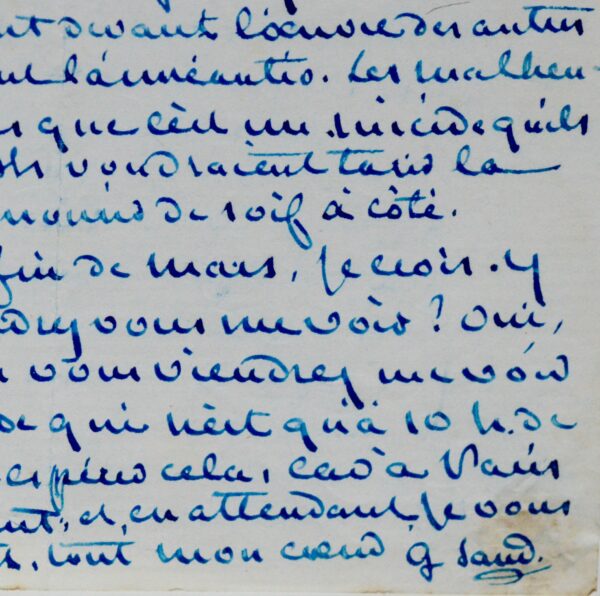 nt devant l'œuvre des autres
nt l'anéantir. Les malheu-
s que c'est un suicide qu'ils
Ils voudraient tarir la
mourir de soif à côté.
fin de mars, je crois. y
drez vous me voir ? Oui,
vous viendrez me voir
de qui n'est qu'à 10 h. de
espérer cela, car à Paris
nt, et, en attendant je vous
s, tout mon cœur G Sand.